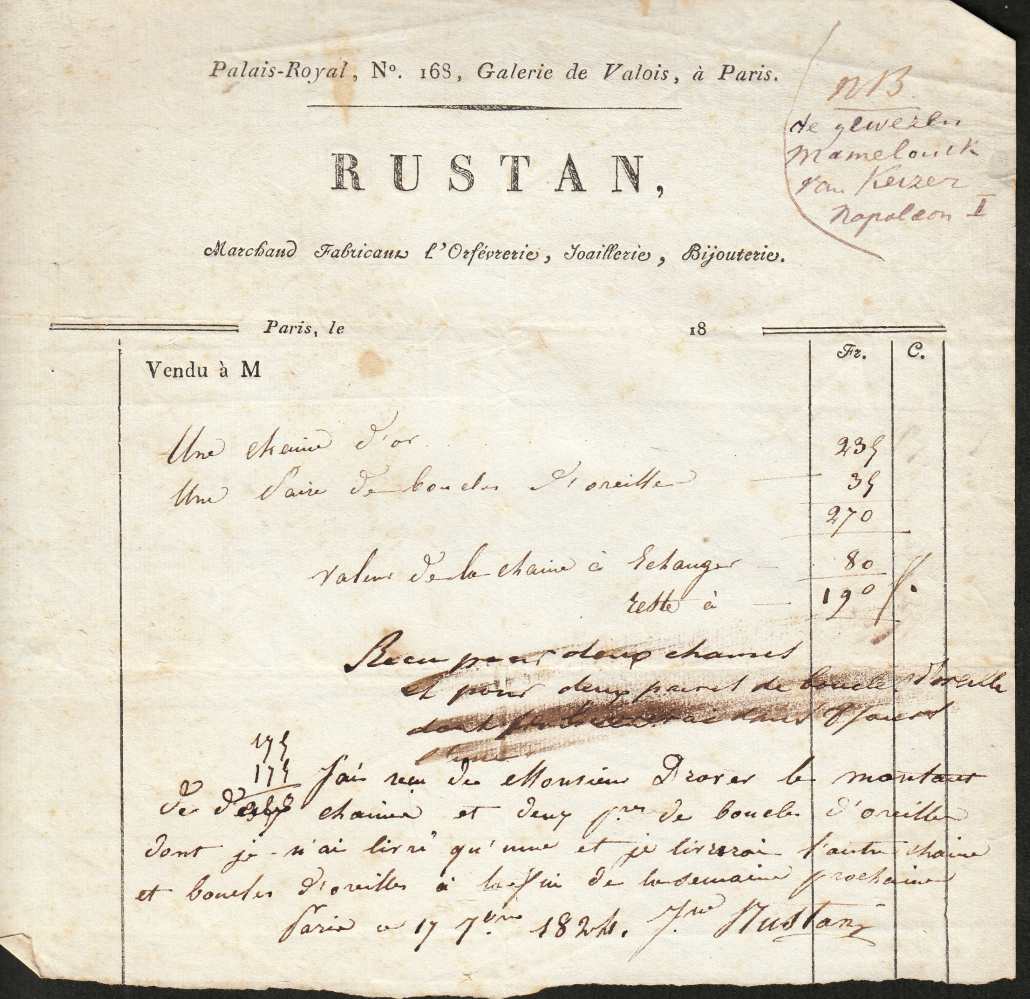 Palais-Royal, N°. 168, Galerie de Valois, à Paris.
NB.
de gewezen
Mamelouck
van Keizer
Napoleon I
RUSTAN,
Marchand Fabricant d'Orfévrerie, Joaillerie, Bijouterie.
Paris, le 18
Vendu à M
Fr. C.
Une chaine d'or 235
Une Paire de boucles d'oreilles 35
270
valeur de la chaine à Echanger 80
reste à 190
Recu pour deux chaines
et pour deux paires de boucles d'oreille
8 jours
175
175
J'ai reçu de Monsieur le montant
de deux chaines et deux pres de boucles d'oreilles
dont je n'ai livré qu'une et je livrerai l'autre chaine
et boucles d'oreilles à la fin de la semaine prochaine
Paris ce 17 7bre 1824. Rustan